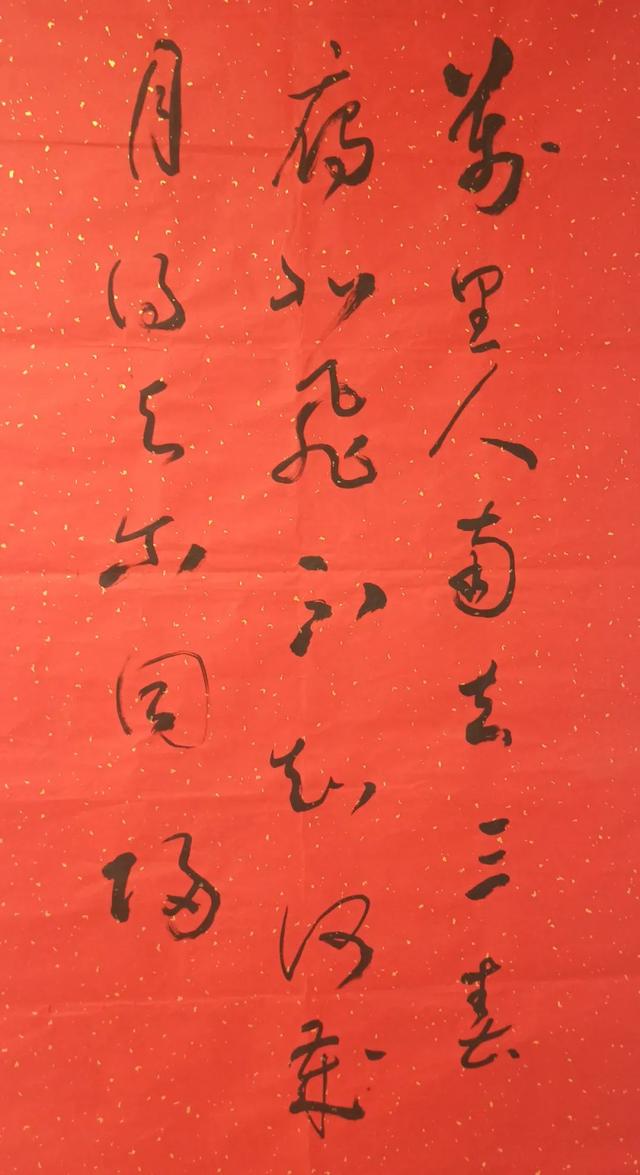 萬里人南去三春
雁北飛不知何歲
月得與尔同歸